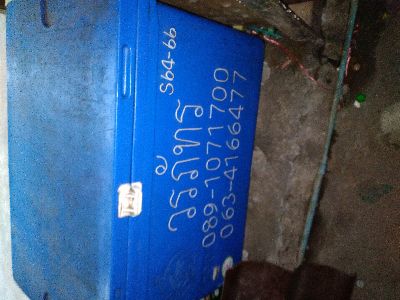 S64-66
วรภัทร
089-1071700
063-4166477